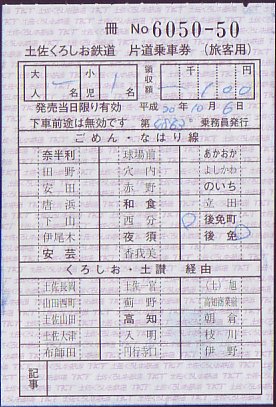 冊 No 6050-50
土佐くろしお鉄道 片道乗車券 (旅客用)
大人 一名 小児 1名 領収額 千 100円
発売当日限り有効 平成 20年 10月 6日
下車前途は無効です 第 列 乗務員発行
ごめん・なはり線
奈半利 球場前 あかおか
田野 穴内 よしかわ
安田 赤野 のいち
唐浜 和食 立田
下山 西分 後免町
伊尾木 夜須 後免
安芸 香我美
くろしお・土讃 経由
土佐長岡 土佐一宮 (土)旭
山田西町 薊野 高知商業前
土佐山田 高知 朝倉
土佐大津 入明 枝川
布師田 円行寺口 伊野
記事